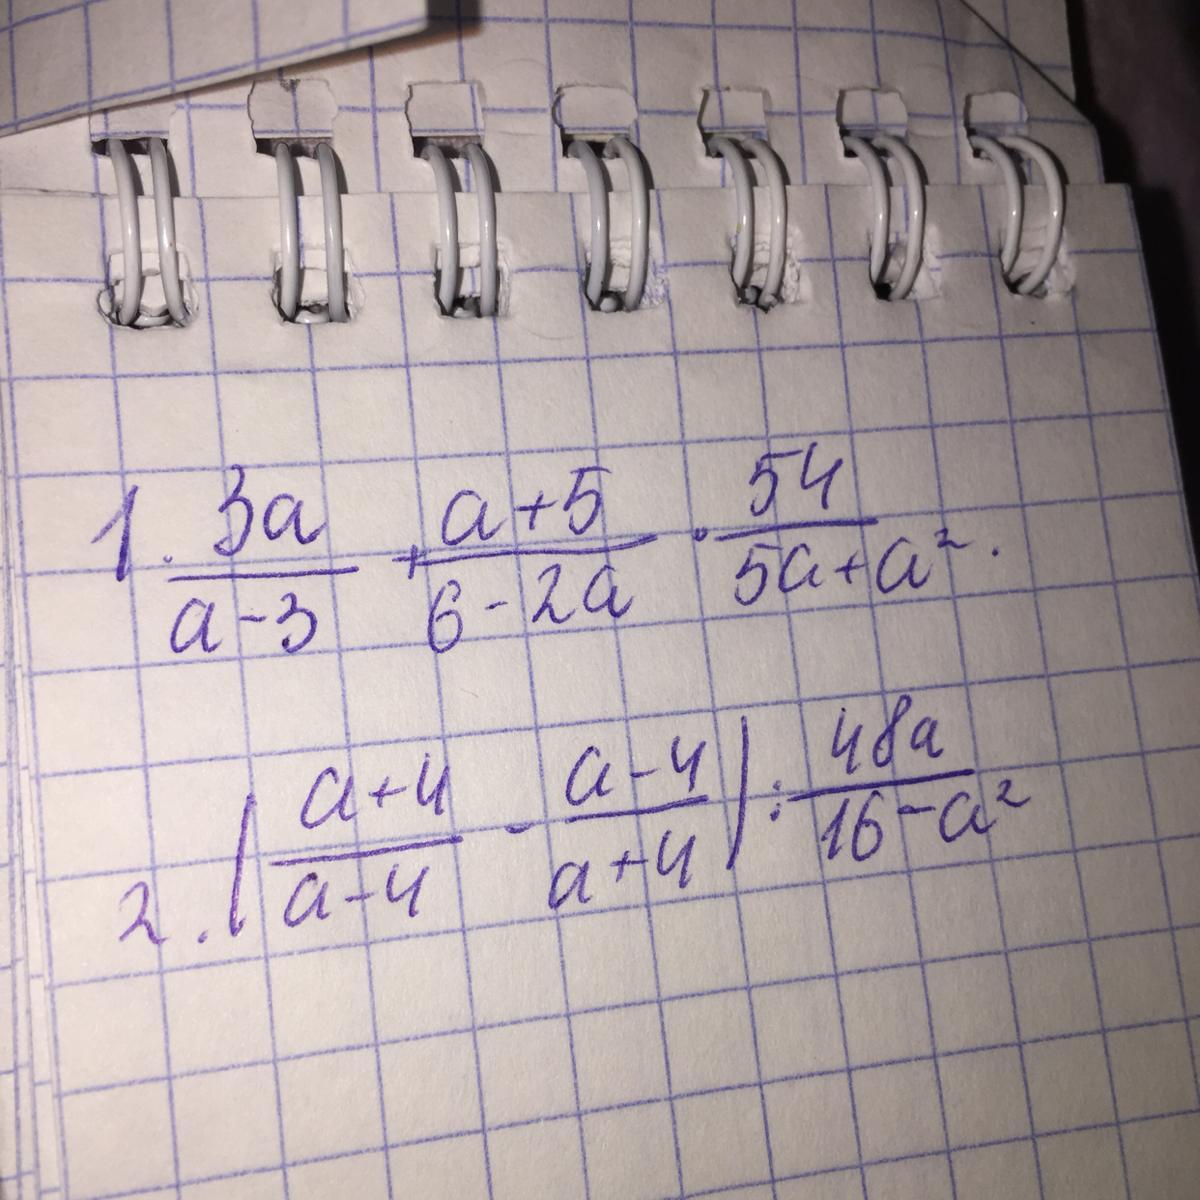 1. 3a/(a-3) + (a+5)/(6-2a) · 54/(5a+a²).
2. ((a+4)/(a-4) - (a-4)/(a+4)) : 48a/(16-a²)